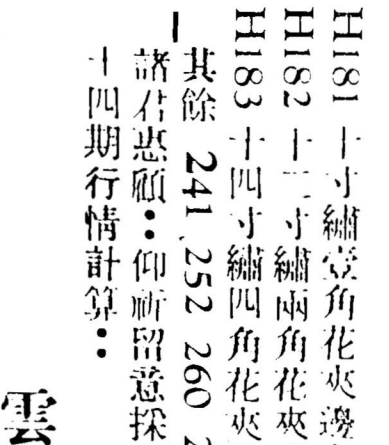 H181 十寸繡壹角花夾邊
H182 十二寸繡兩角花夾
H183 十四寸繡四角花夾
其餘 241 252 260
諸君惠顧：仰祈留意採
十四期行情計算：
雲